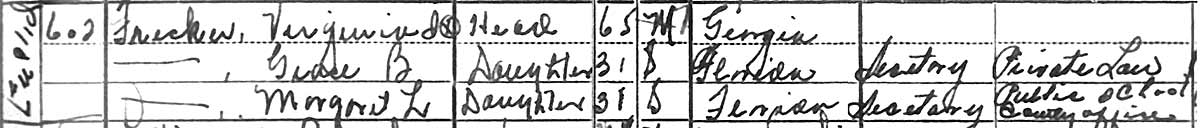 602 Fricker, Virginia Head 65 M Georgia
——, Grace B Daughter 31 S Florida Secretary Private Law
——, Margaret L Daughter 31 S Florida Secretary Public School
County office